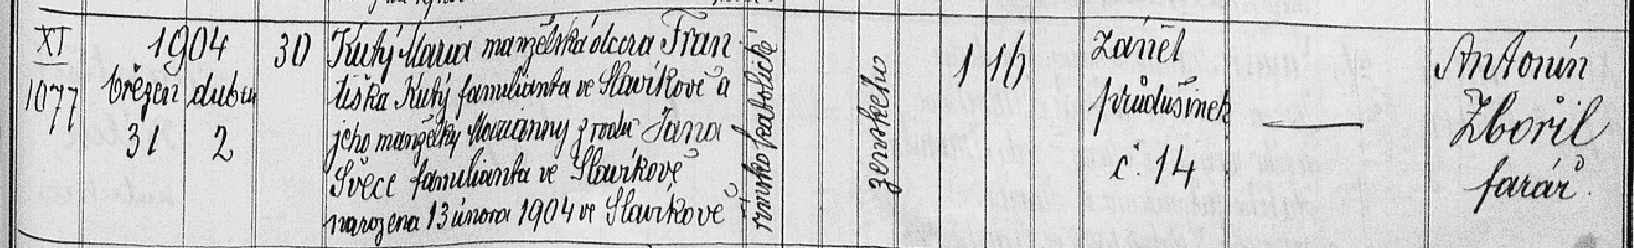 XI
1077
1904
březen dubu
31 2
30
Kutý Maria manželská dcera Fran
tiška Kutý familianta ve Slavíkově a
jeho manželky Marianny z rodu Jana
Švece familianta ve Slavíkově
narozena 13 února 1904 ve Slavíkově
římsko katolické
ženského
1 16
Zánět
průdušinek
č. 14
—
Antonín
Zbořil
farář.